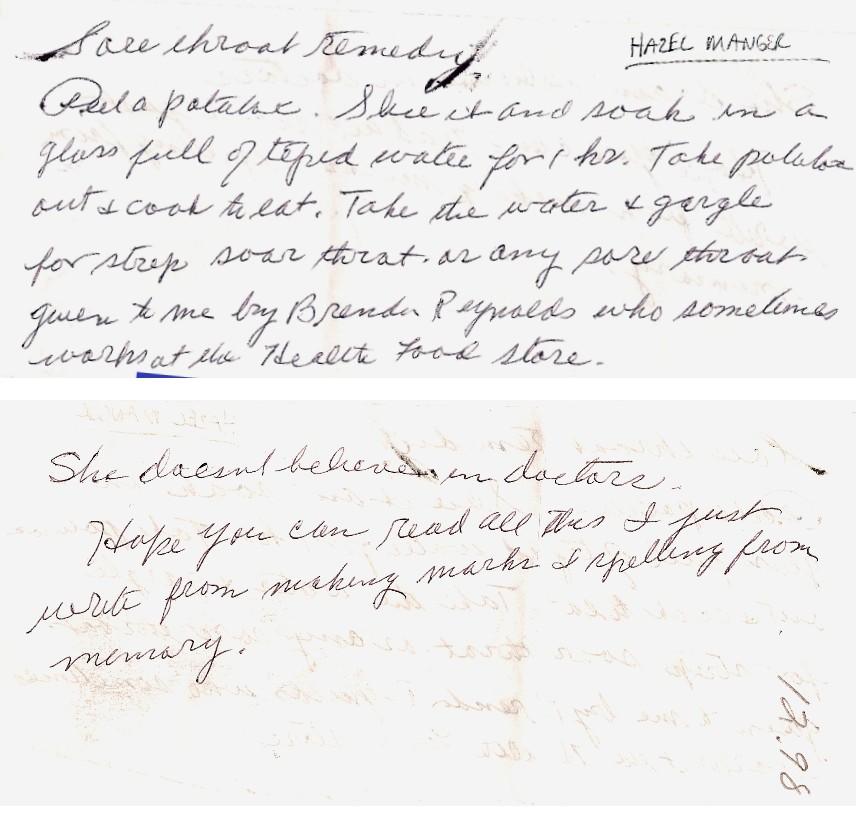 Sore throat remedy.
HAZEL MANGER
Peel a potatoe. Slice it and soak in a
glass full of teped water for 1 hr. Take potatoe
out & cook to eat. Take the water & gargle
for strep soar throat. or any sore throat.
given to me by Brenda Reynolds who sometimes
works at the Health Food store.
She doesnt believe in doctors.
Hope you can read all this I just
write from making marks & spelling from
memory.
12.98